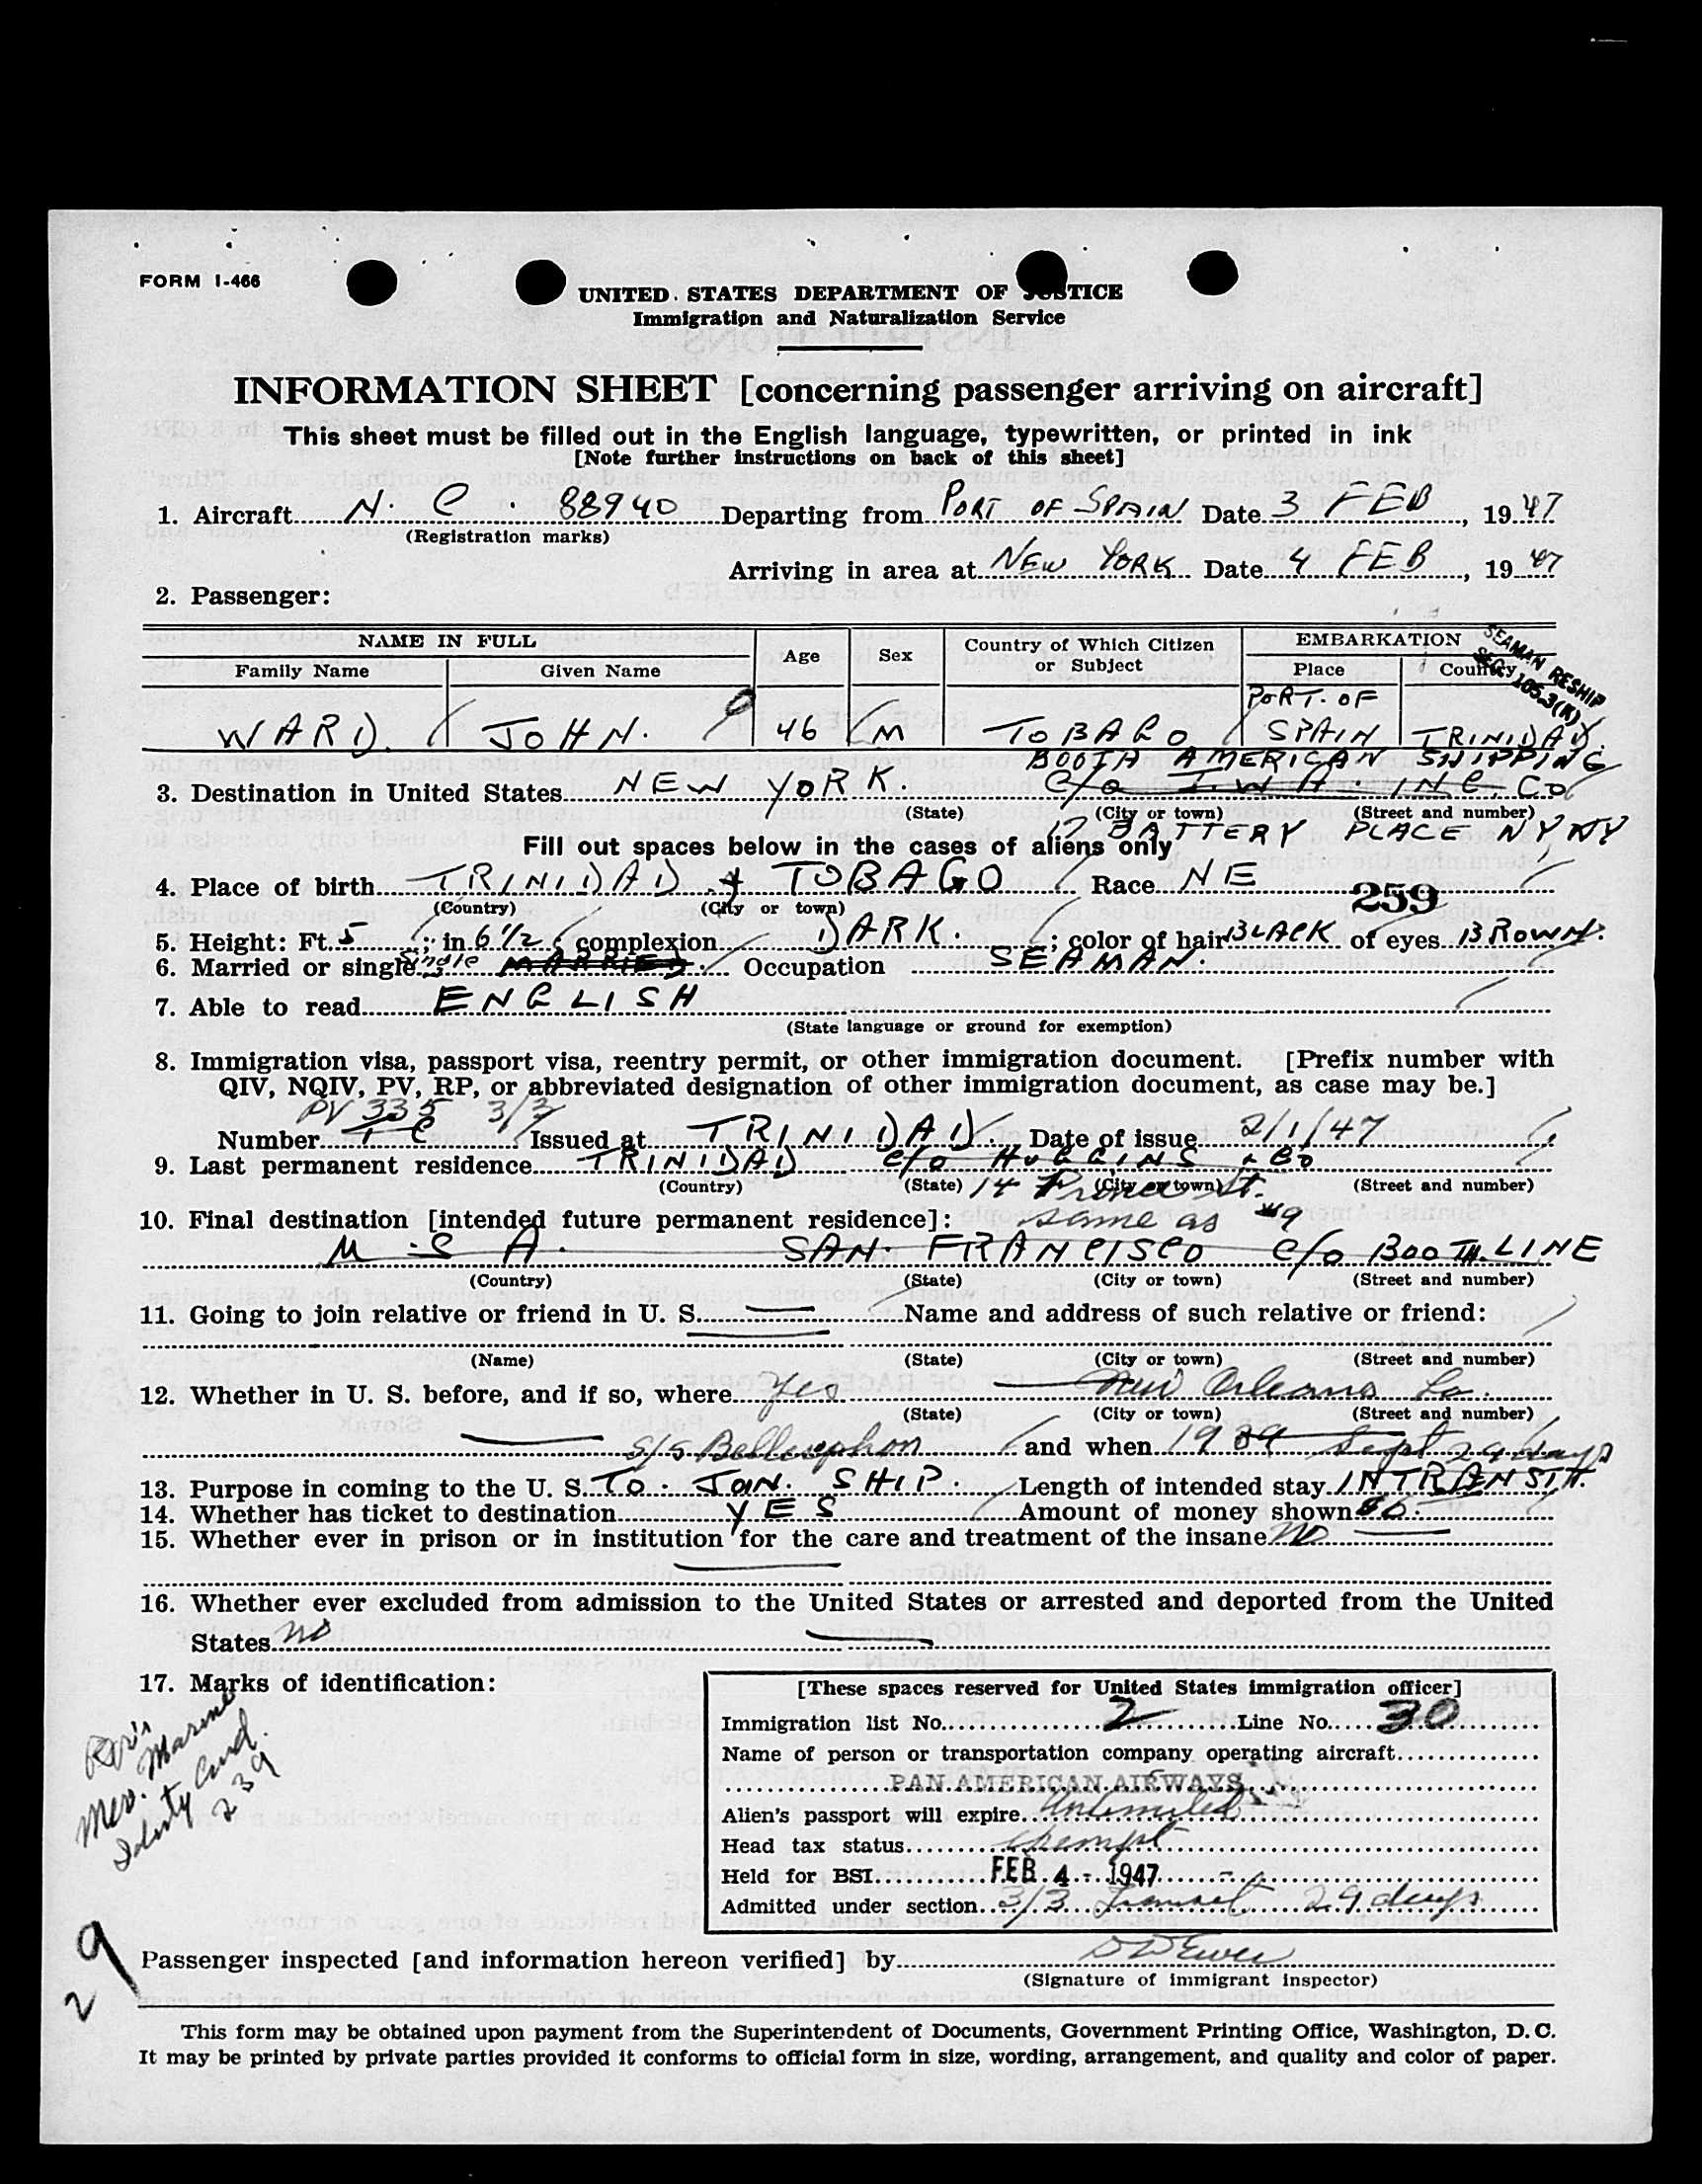 FORM I-466
UNITED STATES DEPARTMENT OF JUSTICE
Immigration and Naturalization Service
INFORMATION SHEET [concerning passenger arriving on aircraft]
This sheet must be filled out in the English language, typewritten, or printed in ink
[Note further instructions on back of this sheet]
1. Aircraft N. C. 88940 Departing from PORT OF SPAIN Date 3 FEB, 1947
(Registration marks)
Arriving in area at NEW YORK Date 4 FEB, 1947
2. Passenger:
NAME IN FULL Age Sex Country of Which Citizen or Subject EMBARKATION
Family Name Given Name Place Country
SEAMAN RESHIP
SEC. 105.3(K)
WARD JOHN. 46 M TOBAGO PORT. OF SPAIN TRINIDAD.
BOOTH AMERICAN SHIPPING
3. Destination in United States NEW YORK. c/o I.W.A. INC. Co
(State) (City or town) (Street and number)
17 BATTERY PLACE NY NY
Fill out spaces below in the cases of aliens only
4. Place of birth TRINIDAD & TOBAGO Race NE 259
(Country) (City or town)
5. Height: Ft. 5; in. 6 1/2; complexion DARK.; color of hair BLACK of eyes BROWN.
6. Married or single Single MARRIED. Occupation SEAMAN.
7. Able to read ENGLISH
(State language or ground for exemption)
8. Immigration visa, passport visa, reentry permit, or other immigration document. [Prefix number with
QIV, NQIV, PV, RP, or abbreviated designation of other immigration document, as case may be.]
PV 335 3/3
Number T C Issued at TRINIDAD. Date of issue 2/1/47
9. Last permanent residence TRINIDAD c/o HUGGINS & Co
(Country) (State) (City or town) (Street and number)
14 Prince St.
10. Final destination [intended future permanent residence]: same as #9
U S A. SAN. FRANCISCO c/o BOOTH. LINE
(Country) (State) (City or town) (Street and number)
11. Going to join relative or friend in U. S. Name and address of such relative or friend:
(Name) (State) (City or town) (Street and number)
12. Whether in U. S. before, and if so, where Yes New Orleans La.
(State) (City or town) (Street and number)
S/S Bellerophon and when 1939 Sept 29 days
13. Purpose in coming to the U. S. TO. JOIN. SHIP. Length of intended stay INTRANSIT.
14. Whether has ticket to destination YES Amount of money shown
15. Whether ever in prison or in institution for the care and treatment of the insane No
16. Whether ever excluded from admission to the United States or arrested and deported from the United
States No
17. Marks of identification:
Mer. Marine
Identy Card.
239
[These spaces reserved for United States immigration officer]
Immigration list No. 2 Line No. 30
Name of person or transportation company operating aircraft
PAN AMERICAN AIRWAYS
Alien's passport will expire Unlimited
Head tax status exempt
Held for BSI FEB 4 - 1947
Admitted under section 3/3 Transit 29 days
29
Passenger inspected [and information hereon verified] by
(Signature of immigrant inspector)
This form may be obtained upon payment from the Superintendent of Documents, Government Printing Office, Washington, D. C.
It may be printed by private parties provided it conforms to official form in size, wording, arrangement, and quality and color of paper.